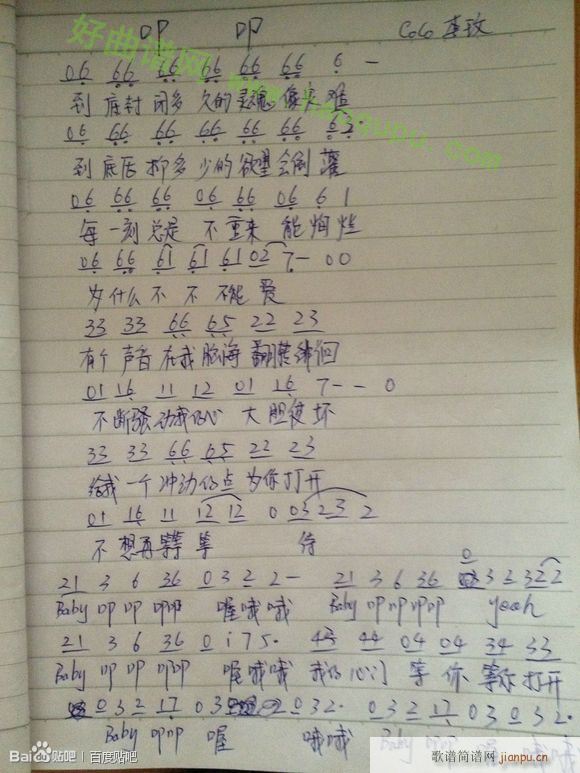 叩 叩 CoCo 李玟
好曲谱网
06 66 66 66 66 66 6 -
到底封闭多久的灵魂像灾难
06 66 66 66 66 66 63·
到底压抑多少的欲望会倒灌
06 66 66 06 66 06 6 1
每一刻总是 不重来 能绚烂
06 66 61 61 61 02 7- 00
为什么不 不 不能 爱
33 33 66 65 22 23
有个声音在我脑海翻腾徘徊
01 16 11 12 01 16 7-- 0
不断骚动我的心 大胆使坏
33 33 66 65 22 23
给我一个冲动的点为你打开
01 16 11 12 12 0 03 23 2
不想再等等 待
21 3 6 36 0 3 2 2 - 21 3 6 36 0 3 2 3 2 2
Baby 叩叩 叩叩 喔哦哦 Baby 叩叩叩叩 yeah
21 3 6 36 0 i 7 5· 44 44 04 04 34 33
Baby 叩叩 叩叩 喔哦哦 我的心门 等你 等你打开
0 3 2 17 0 3 2 0 3 2· 0 3 2 17 0 3 0 3 2·
Baby 叩叩 喔 哦哦 Baby 叩叩
Baidu贴吧 | 百度贴吧
歌谱简谱网
jianpu.cn